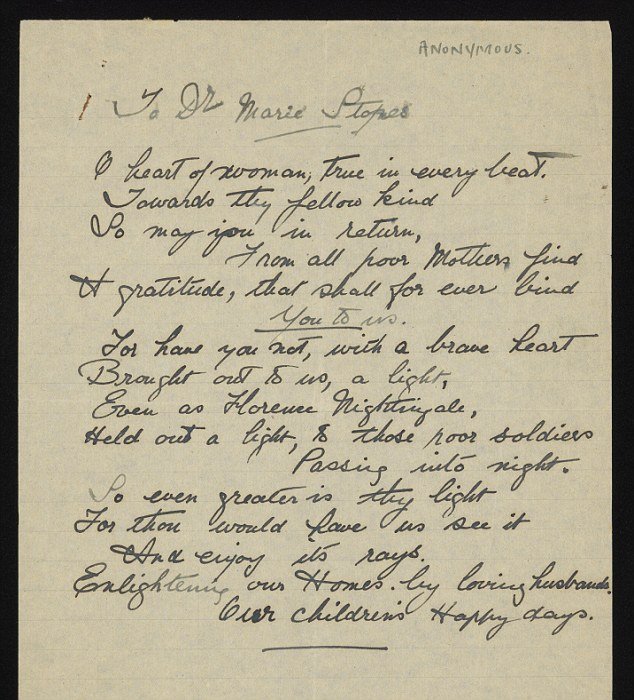 ANONYMOUS.
To Dr Marie Stopes
O heart of woman, true in every beat.
Towards thy fellow kind
So may you in return,
From all poor Mothers find
A gratitude, that shall for ever bind
You to us.
For have you not, with a brave heart
Brought out to us, a light,
Even as Florence Nightingale,
Held out a light, to those poor soldiers
Passing into night.
So even greater is thy light
For thou would have us see it
And enjoy its rays.
Enlightening our Homes. by loving husbands.
Our children's Happy days.